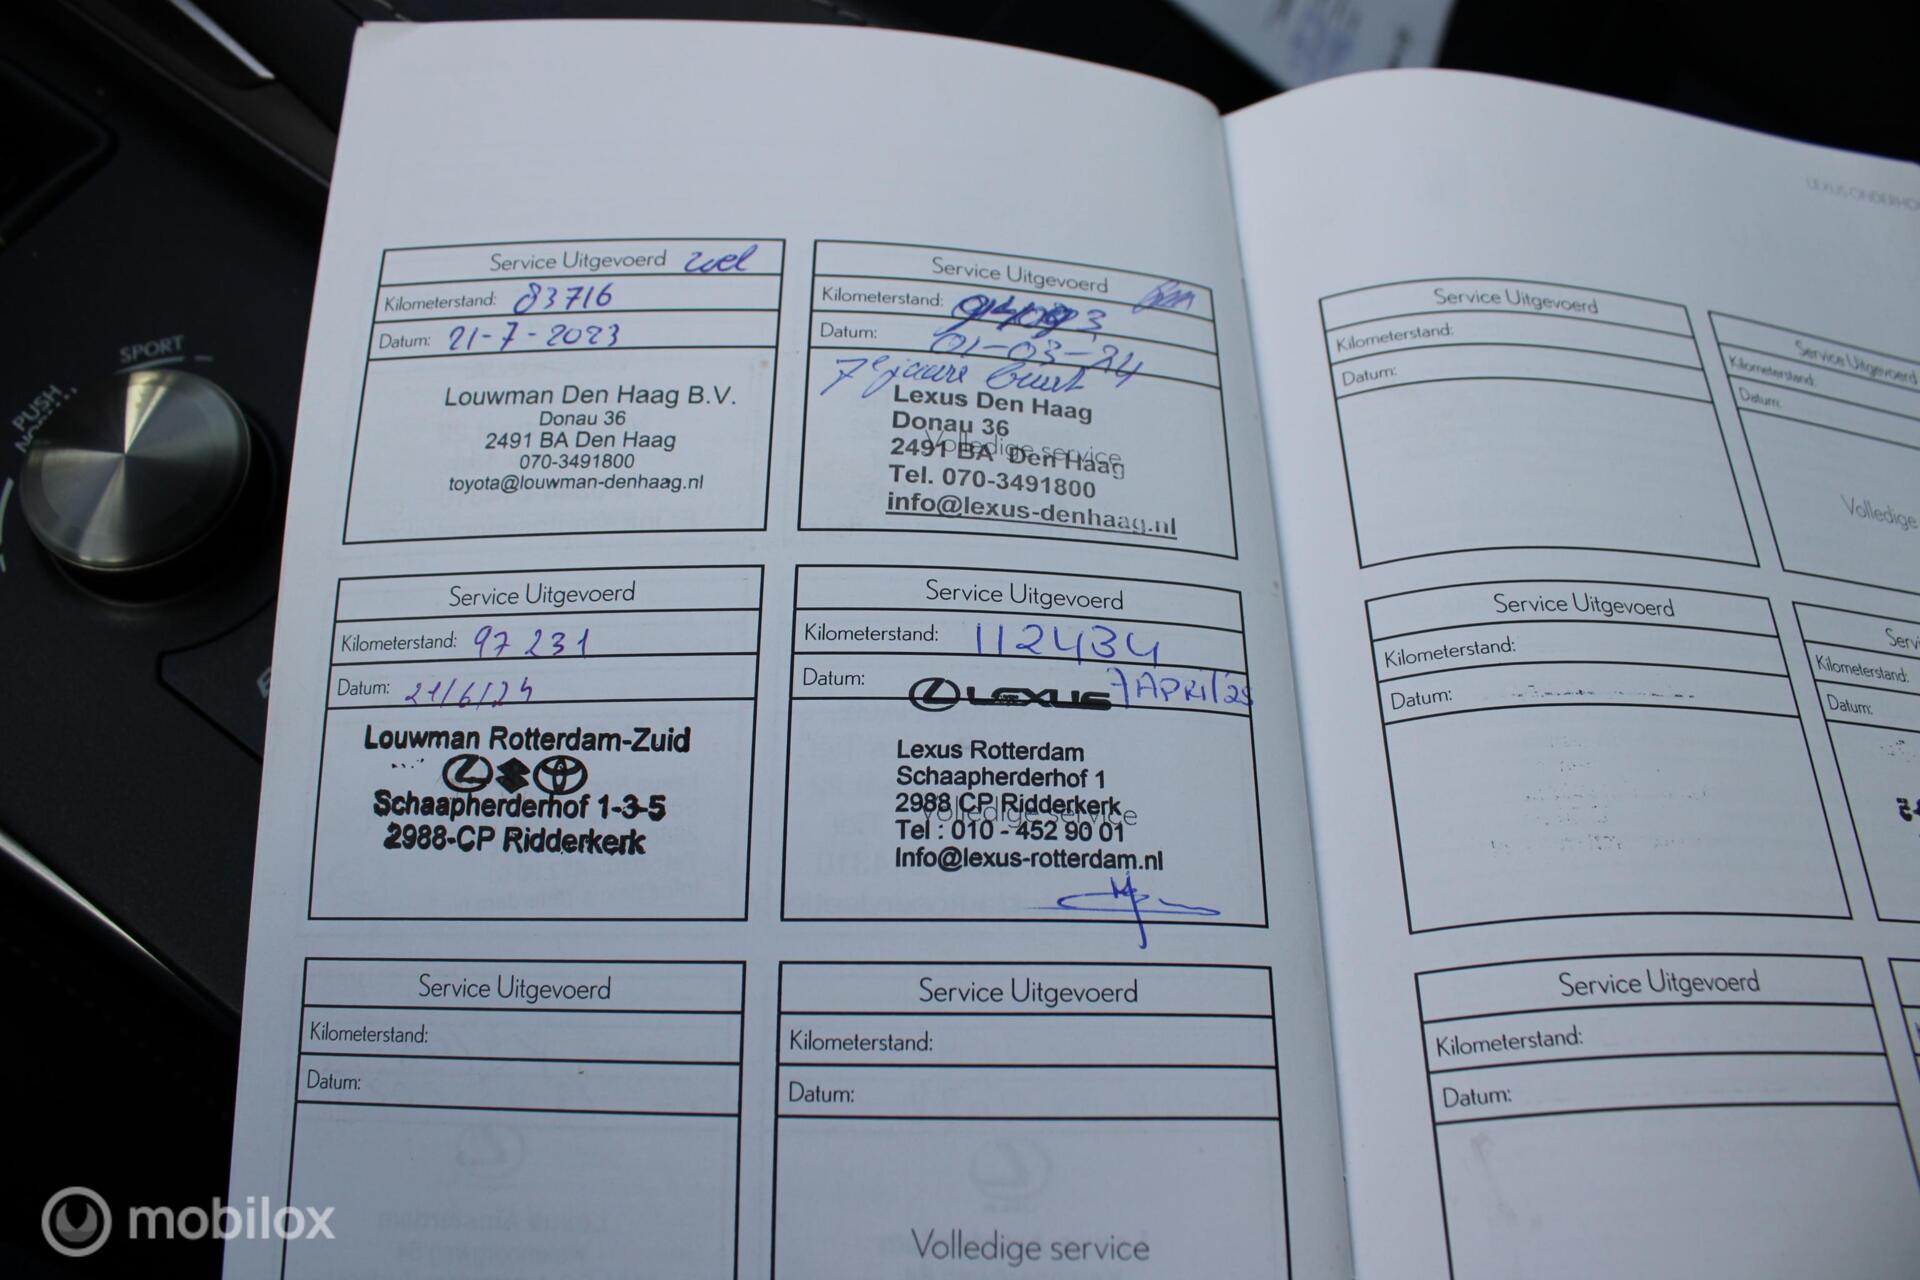 SPORT
PUSH
LEXUS ONDERHO
Service Uitgevoerd
Kilometerstand: 83716
Datum: 21-7-2023
Louwman Den Haag B.V.
Donau 36
2491 BA Den Haag
070-3491800
toyota@louwman-denhaag.nl
Service Uitgevoerd
Kilometerstand:
Datum: 01-03-24
7e jaars beurt
Lexus Den Haag
Donau 36
Volledige service
2491 BA Den Haag
Tel. 070-3491800
info@lexus-denhaag.nl
Service Uitgevoerd
Kilometerstand: 97231
Datum: 21/6/24
Louwman Rotterdam-Zuid
Schaapherderhof 1-3-5
2988-CP Ridderkerk
Service Uitgevoerd
Kilometerstand: 112434
Datum: 7 APRIL '25
LEXUS
Lexus Rotterdam
Schaapherderhof 1
2988 CP Ridderkerk
Volledige service
Tel : 010 - 452 90 01
Info@lexus-rotterdam.nl
Service Uitgevoerd
Kilometerstand:
Datum:
Service Uitgevoerd
Kilometerstand:
Datum:
Volledige service
Service Uitgevoerd
Kilometerstand:
Datum:
Service Uitgevoerd
Kilometerstand:
Datum:
Volledige
Service Uitgevoerd
Kilometerstand:
Datum:
Servi
Kilometerstand:
Datum:
Service Uitgevoerd
Kilometerstand:
Datum:
mobilox